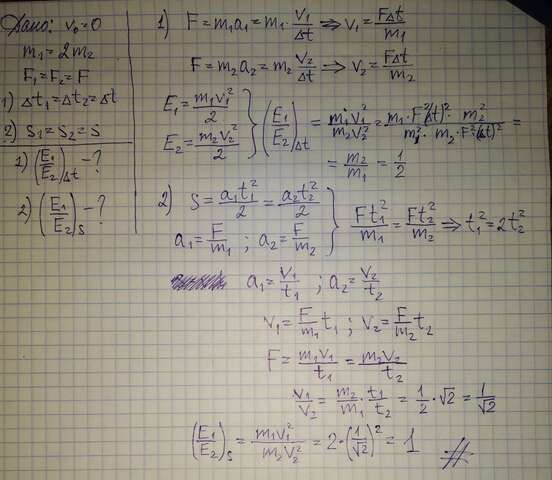 Дано: v₀=0
m₁ = 2m₂
F₁=F₂=F
1) Δt₁=Δt₂=Δt
2) S₁=S₂=S
1) (E₁/E₂)Δt - ?
2) (E₁/E₂)s - ?
1) F=m₁a₁=m₁·v₁/Δt ⟹ v₁=FΔt/m₁
F=m₂a₂=m₂ v₂/Δt ⟶ v₂=FΔt/m₂
E₁=m₁v₁²/2
E₂=m₂v₂²/2 } (E₁/E₂)Δt = m₁v₁²/m₂v₂² = m₁·F²(Δt)²·m₂²/m₁²·m₂·F²(Δt)² =
= m₂/m₁ = 1/2
2) S=a₁t₁²/2=a₂t₂²/2
a₁=F/m₁ ; a₂=F/m₂ } Ft₁²/m₁=Ft₂²/m₂ ⟹ t₁²=2t₂²
a₁=v₁/t₁ ; a₂=v₂/t₂
v₁=F/m₁ t₁ ; v₂=F/m₂ t₂
F=m₁v₁/t₁=m₂v₂/t₂
v₁/v₂=m₂/m₁·t₁/t₂=1/2·√2=1/√2
(E₁/E₂)s=m₁v₁²/m₂v₂²=2·(1/√2)²=1